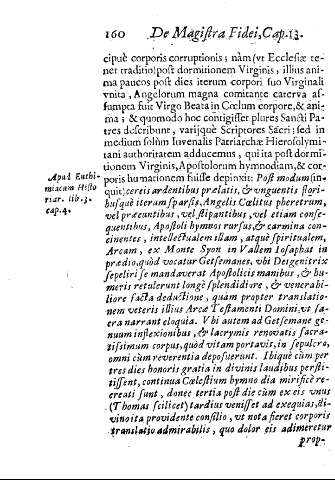 160 De Magistra Fidei, Cap. 13.
cipuè corporis corruptionis; nàm (vt Ecclesiæ te-
net traditio) post dormitionem Virginis, illius ani-
ma paucos post dies iterum corpori suo Virginali
vnita, Angelorum magna comitante caterva as-
sumpta fuit Virgo Beata in Cœlum corpore, & ani-
ma; & quomodo hoc contigisset plures Sancti Pa-
tres describunt, varijquè Scriptores Sacri; sed in
medium solùm Iuvenalis Patriarchæ Hierosolymi-
tani authoritatem adducemus, qui ita post dormi-
tionem Virginis, Apostolorum hymnodiam, & cor-
poris humationem fuisse depinxit: Post modum (in-
quit) cereis ardentibus prælatis, & vnguentis flori-
busquè iterum sparsis, Angelis Cœlitus pheretrum,
vel præeuntibus, vel stipantibus, vel etiam conse-
quentibus, Apostoli hymnos rursus, & carmina con-
cinentes, intellectualem illam, atquè spiritualem,
Arcam, ex Monte Syon in Vallem Iosaphat in
prædio, quòd vocatur Getsemanes, vbi Desgenitrix
sepeliri se mandaverat Apostolicis manibus, & hu-
meris retulerunt longè splendidiore, & venerabi-
liore facta deductione, quàm propter translatio-
nem veteris illius Arcæ Testamenti Domini, vt sa-
cra narrant eloquia. Vbi autem ad Getsemane ge-
nuum inflexionibus, & lacrymis renovatis sacra-
tissimum corpus, quòd vitam portavit, in sepulcro,
omni cùm reverentia deposuerunt. Ibiquè cùm per
tres dies honoris gratia in divinis laudibus persti-
tissent, continua Cœlestium hymno dia mirificè re-
creati sunt, donec tertia post die cùm ex eis vnus
(Thomas scilicet) tardius venisset ad exequias, di-
vino ita providente consilio, vt nota fieret corporis
translatio admirabilis, quo dolor eis adimeretur
prop-
Apud Euthi-
miacam Histo
riar. lib. 3.
cap. 4.